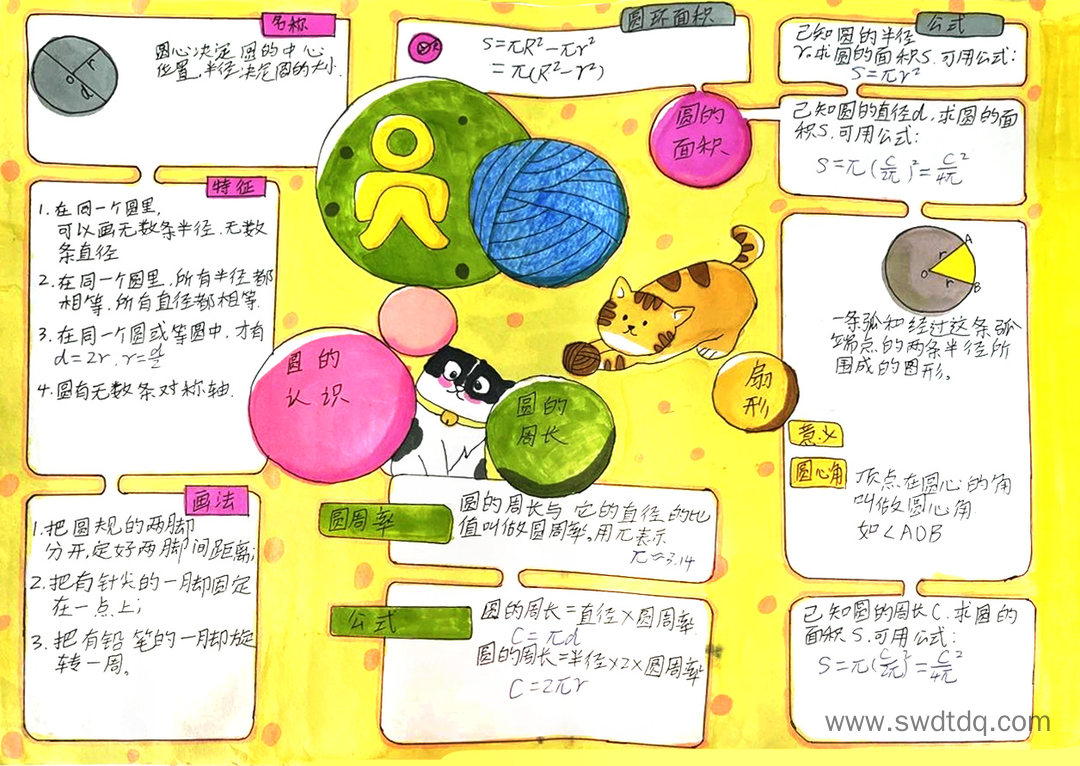 名称
圆心决定圆的中心
位置,半径决定圆的大小.
r
o
d
特征
1.在同一个圆里,
可以画无数条半径,无数
条直径
2.在同一个圆里,所有半径都
相等,所有直径都相等.
3.在同一个圆或等圆中,才有
d=2r, r=d/2
4.圆有无数条对称轴.
画法
1.把圆规的两脚
分开,定好两脚间距离;
2.把有针尖的一脚固定
在一点上;
3.把有铅笔的一脚旋
转一周。
圆环面积
R
S=πR²-πr²
=π(R²-r²)
圆
圆的
认识
圆的
周长
圆的
面积
扇
形
圆周率
圆的周长与它的直径的比
值叫做圆周率。用π表示
π≈3.14
公式
圆的周长=直径×圆周率
C=πd
圆的周长=半径×2×圆周率
C=2πr
公式
已知圆的半径
r.求圆的面积S.可用公式:
S=πr²
已知圆的直径d,求圆的面
积S.可用公式:
S=π(C/2π)²=C²/4π
A
r
o
r
B
一条弧和经过这条弧
端点的两条半径所
围成的图形。
意义
圆心角
顶点在圆心的角
叫做圆心角
如∠AOB
已知圆的周长C.求圆的
面积S.可用公式:
S=π(C/2π)²=C²/4π
www.swdtdq.com